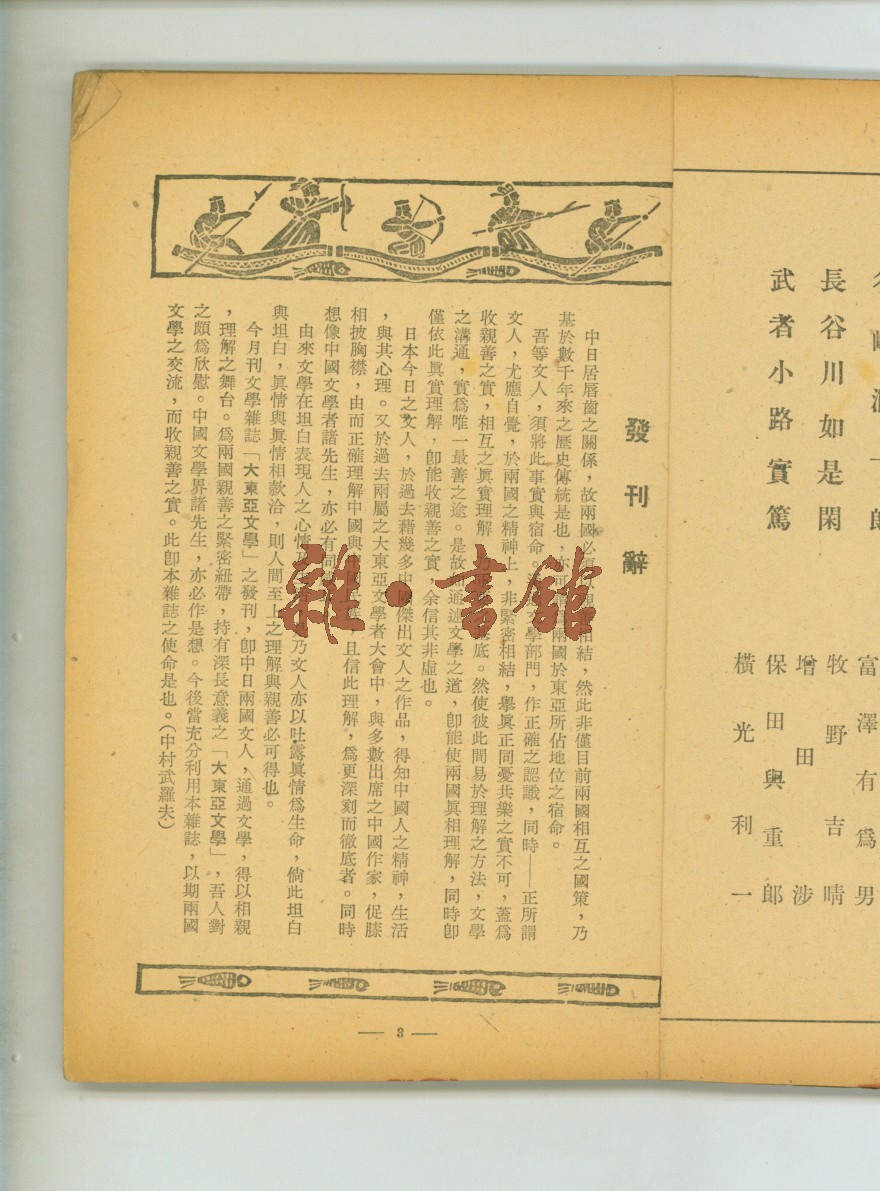 長谷川如是閑
武者小路實篤
富澤有爲男
牧野吉晴
增田涉
保田與重郎
橫光利一
發刊辭
中日居唇齒之關係,故兩國必 相結,然此非僅目前兩國相互之國策,乃
基於數千年來之歷史傳統是也,亦可 兩國於東亞所佔地位之宿命。
吾等文人,須將此事實與宿命。 文學部門,作正確之認識,同時——正所謂
文人,尤應自覺,於兩國之精神上,非緊密相結,擧眞正同憂共樂之實不可,蓋爲
收親善之實,相互之眞實理解 底。然使彼此間易於理解之方法,文學
之溝通,實爲唯一最善之途。是故 通過文學之道,卽能使兩國眞相理解,同時卽
僅依此眞實理解,卽能收親善之實,余信其非虛也。
日本今日之文人,於過去藉幾多中國傑出文人之作品,得知中國人之精神,生活
,與其心理。又於過去兩屬之大東亞文學者大會中,與多數出席之中國作家,促膝
相披胸襟,由而正確理解中國與中國民族,且信此理解,爲更深刻而徹底者。同時
想像中國文學者諸先生,亦必有同
由來文學在坦白表現人之心情 乃文人亦以吐露眞情爲生命,倘此坦白
與坦白,眞情與眞情相款洽,則人間至上之理解與親善必可得也。
今月刊文學雜誌「大東亞文學」之發刊,卽中日兩國文人,通過文學,得以相親
,理解之舞台。爲兩國親善之緊密紐帶,持有深長意義之「大東亞文學」,吾人對
之頗爲欣慰。中國文學界諸先生,亦必作是想。今後當充分利用本雜誌,以期兩國
文學之交流,而收親善之實。此卽本雜誌之使命是也。(中村武羅夫)
雜·書館
— 3 —